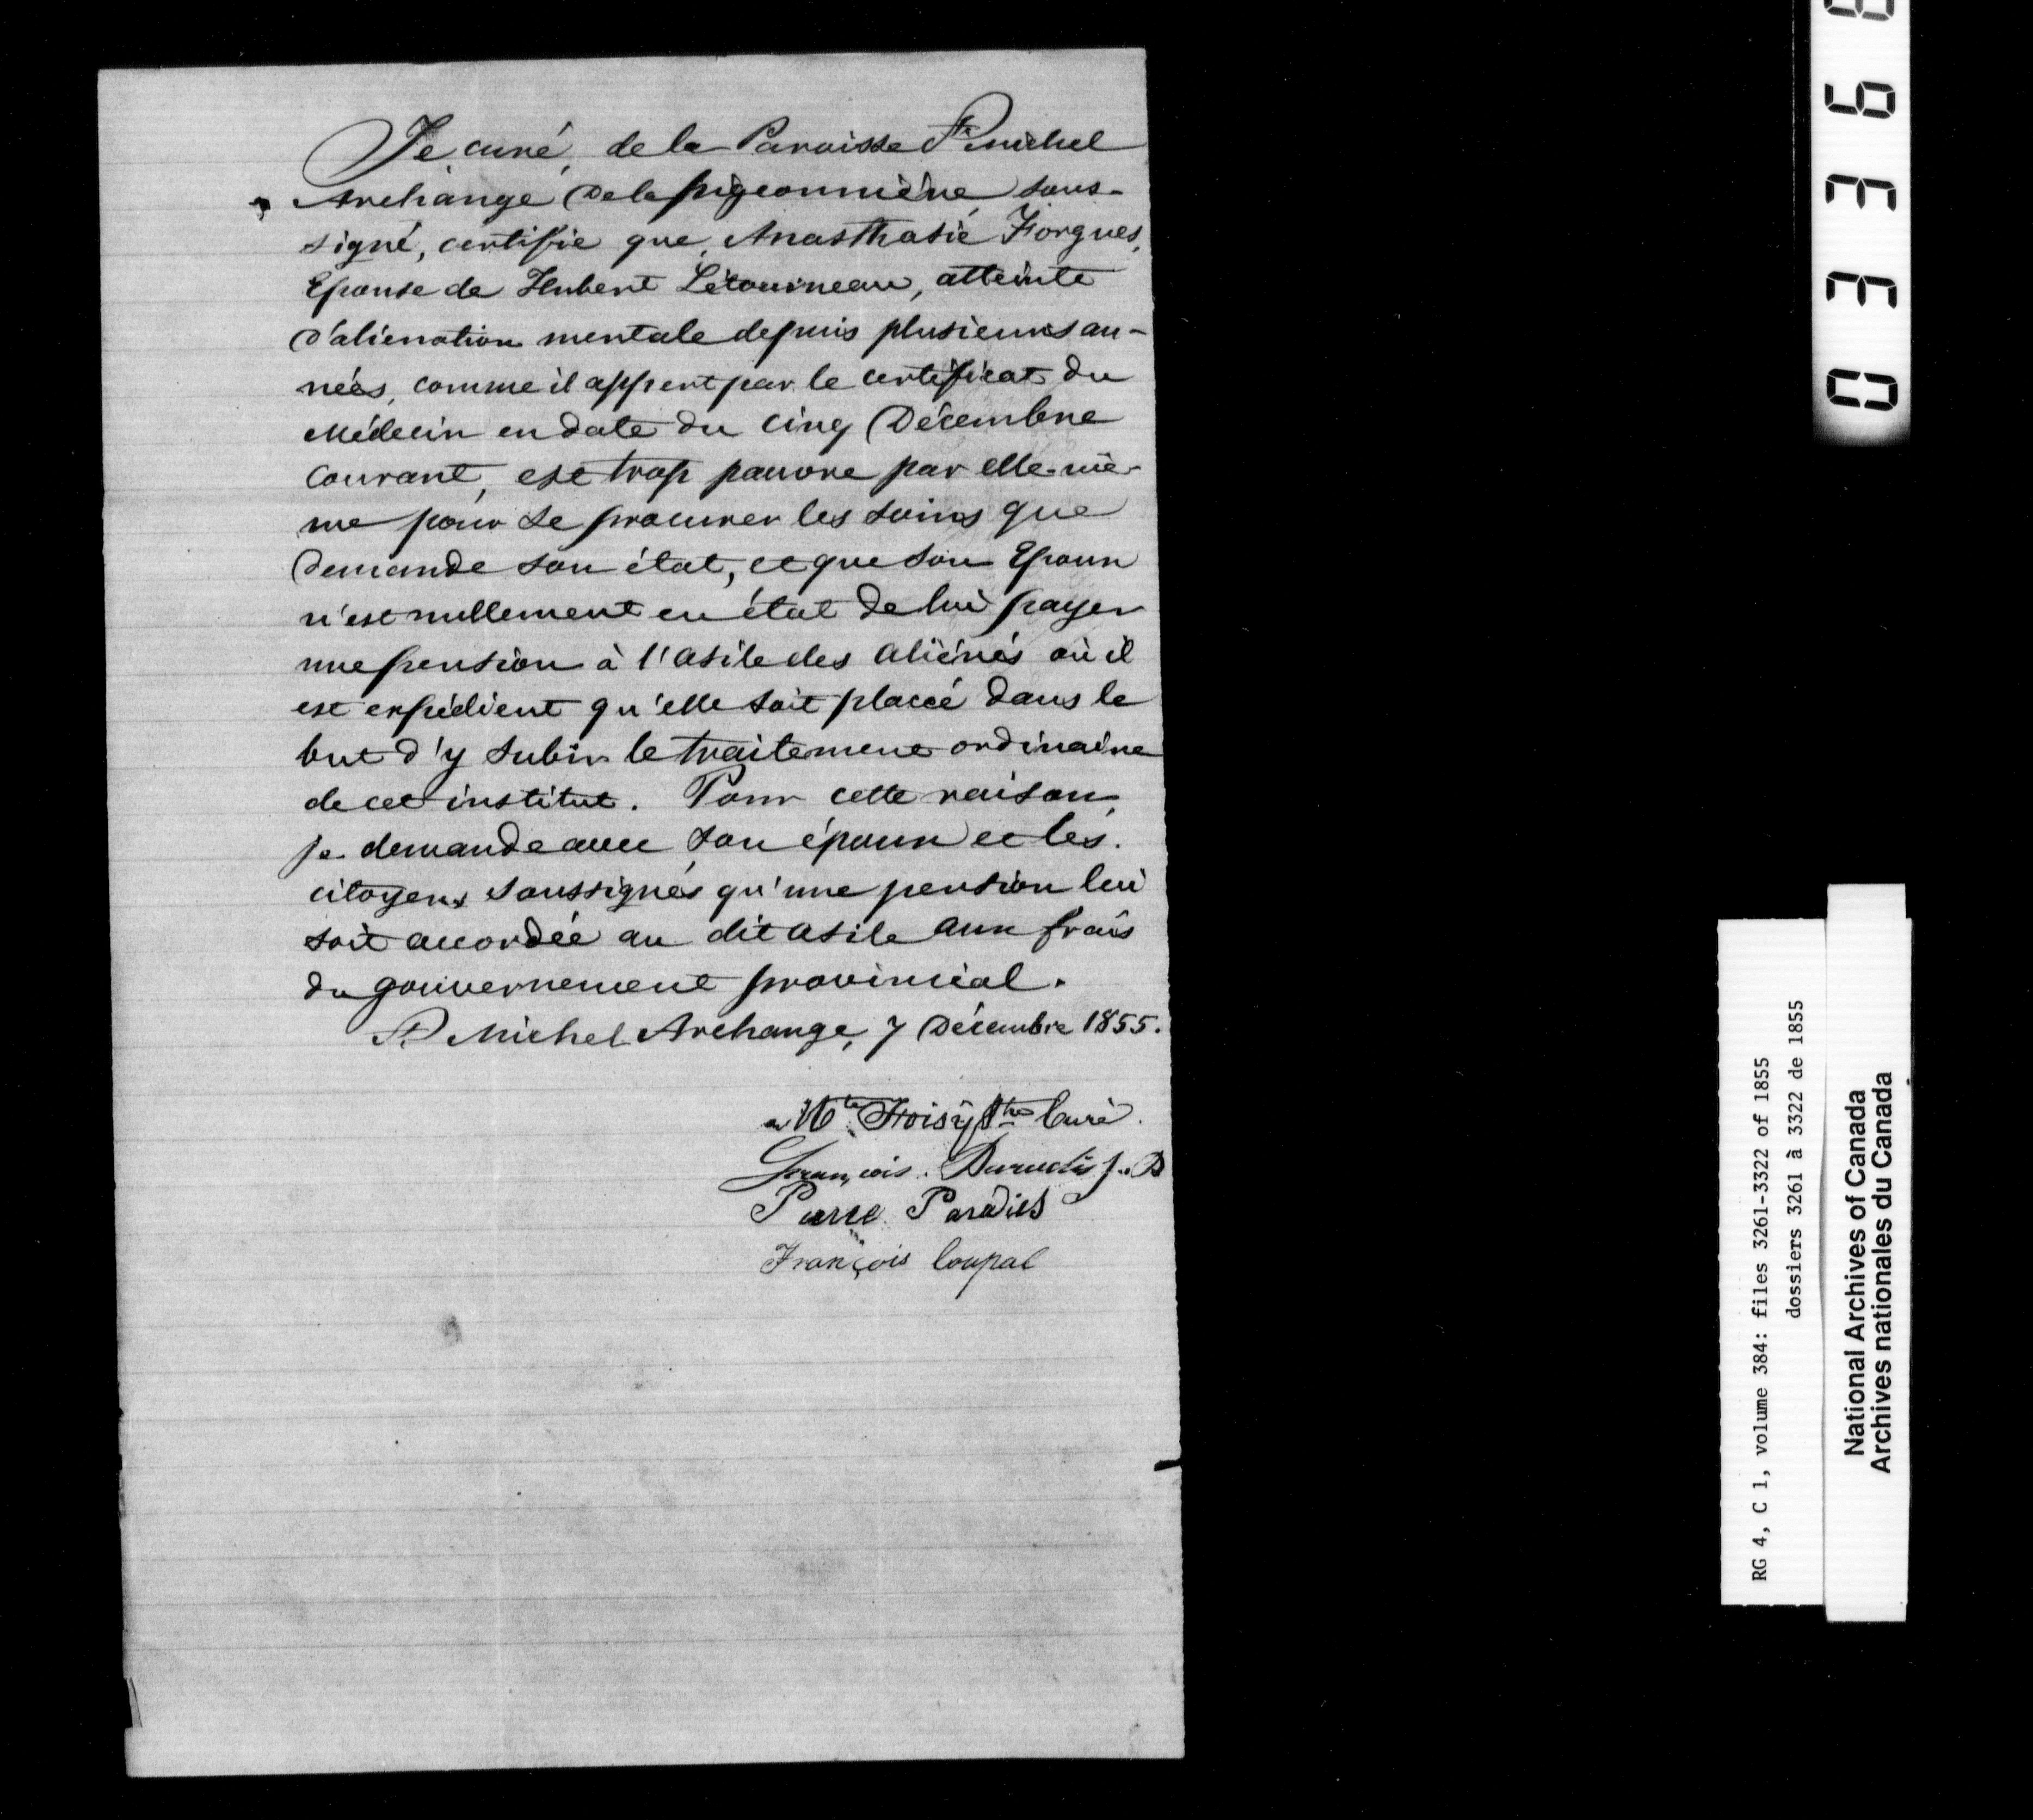 Je, curé, de la Paroisse St. michel
Archange De la pigeonnière sous-
signé, certifie que, Anasthasie Forgues,
Epouse de Hubert Létourneau, atteinte
d'alienation mentale depuis plusieurs an-
nées, comme il appert par le certificat du
Médecin en date du cinq Décembre
Courant, est trop pauvre par elle-mê-
me pour se procurer les soins que
demande son état, et que son Epoux
n'est nullement en état de lui payer
une pension à l'asile des aliénés où il
est expédient qu'elle soit placée dans le
but d'y subir le traitement ordinaire
de cet institut. Pour cette raison,
je demande avec son époux et les
citoyens soussignés qu'une pension lui
soit accordée au dit asile aux frais
du gouvernement provincial.
St. Michel Archange, 7 Décembre 1855.
Froisy Ptre Curé.
François
Pierre Paradies
François Coupal
0 3 3 6
RG 4, C 1, volume 384: files 3261-3322 of 1855
dossiers 3261 à 3322 de 1855
National Archives of Canada
Archives nationales du Canada